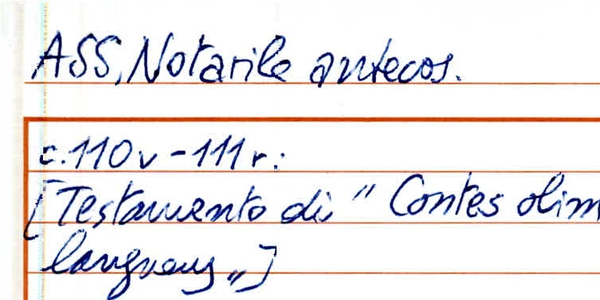 ASS, Notarile antecos.
c. 110v - 111r:
[Testamento di " Contes olim
languens „]